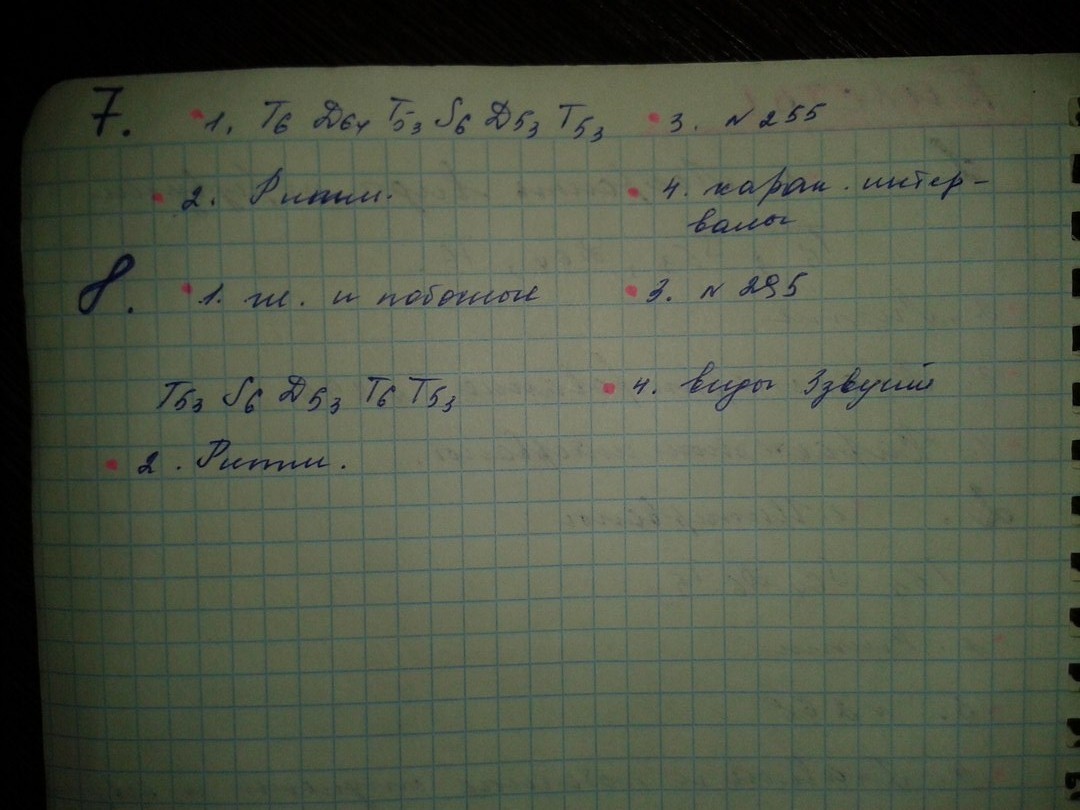 7. 1. T6 D64 T53 S6 D53 T53 3. N 255
2. Ритм. 4. харак. интер-
валы
8. 1. ж. и побочные 3. N 295
T53 S6 D53 T6 T53 4. виды 3звучий
2. Ритм.